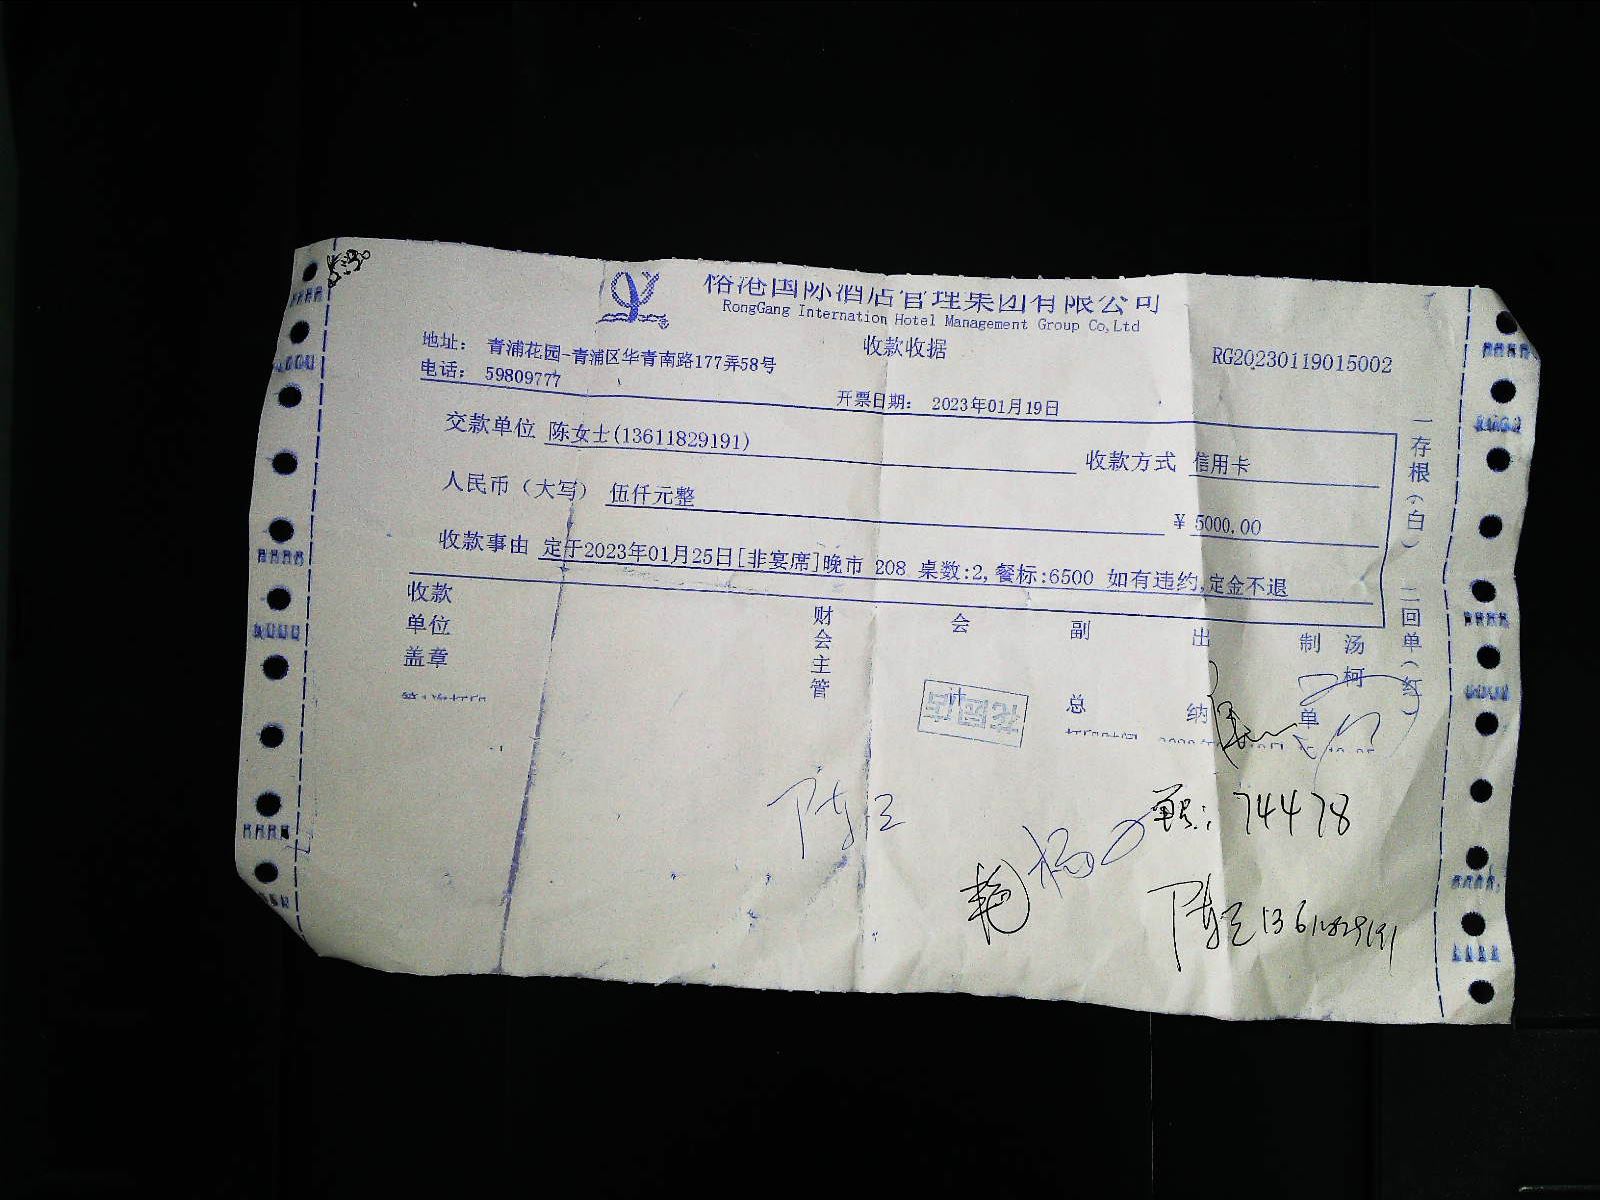 榕港国际酒店管理集团有限公司
RongGang Internation Hotel Management Group Co,Ltd
收款收据
地址： 青浦花园-青浦区华青南路177弄58号
RG20230119015002
电话： 59809777
开票日期： 2023年01月19日
交款单位 陈女士(13611829191)
收款方式 信用卡
人民币（大写） 伍仟元整
￥ 5000.00
收款事由 定于2023年01月25日[非宴席]晚市 208 桌数:2,餐标:6500 如有违约,定金不退
一存根（白） 二回单（红）
收款单位盖章
财会主管
会
副总
出纳
制单
汤柯
花园店
74478
13611829191